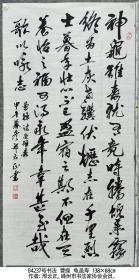 神龜雖壽猶有竟時騰蛇乘霧
終為土灰老驥伏櫪志在千里烈
士暮年壯心不已盈縮之期不但在天
養怡之福可得永年幸甚至哉
歌以詠志
84237号书法 曹操 龟虽寿 138×68cm
作者: 云正, 嵊州市书法家协会会员。